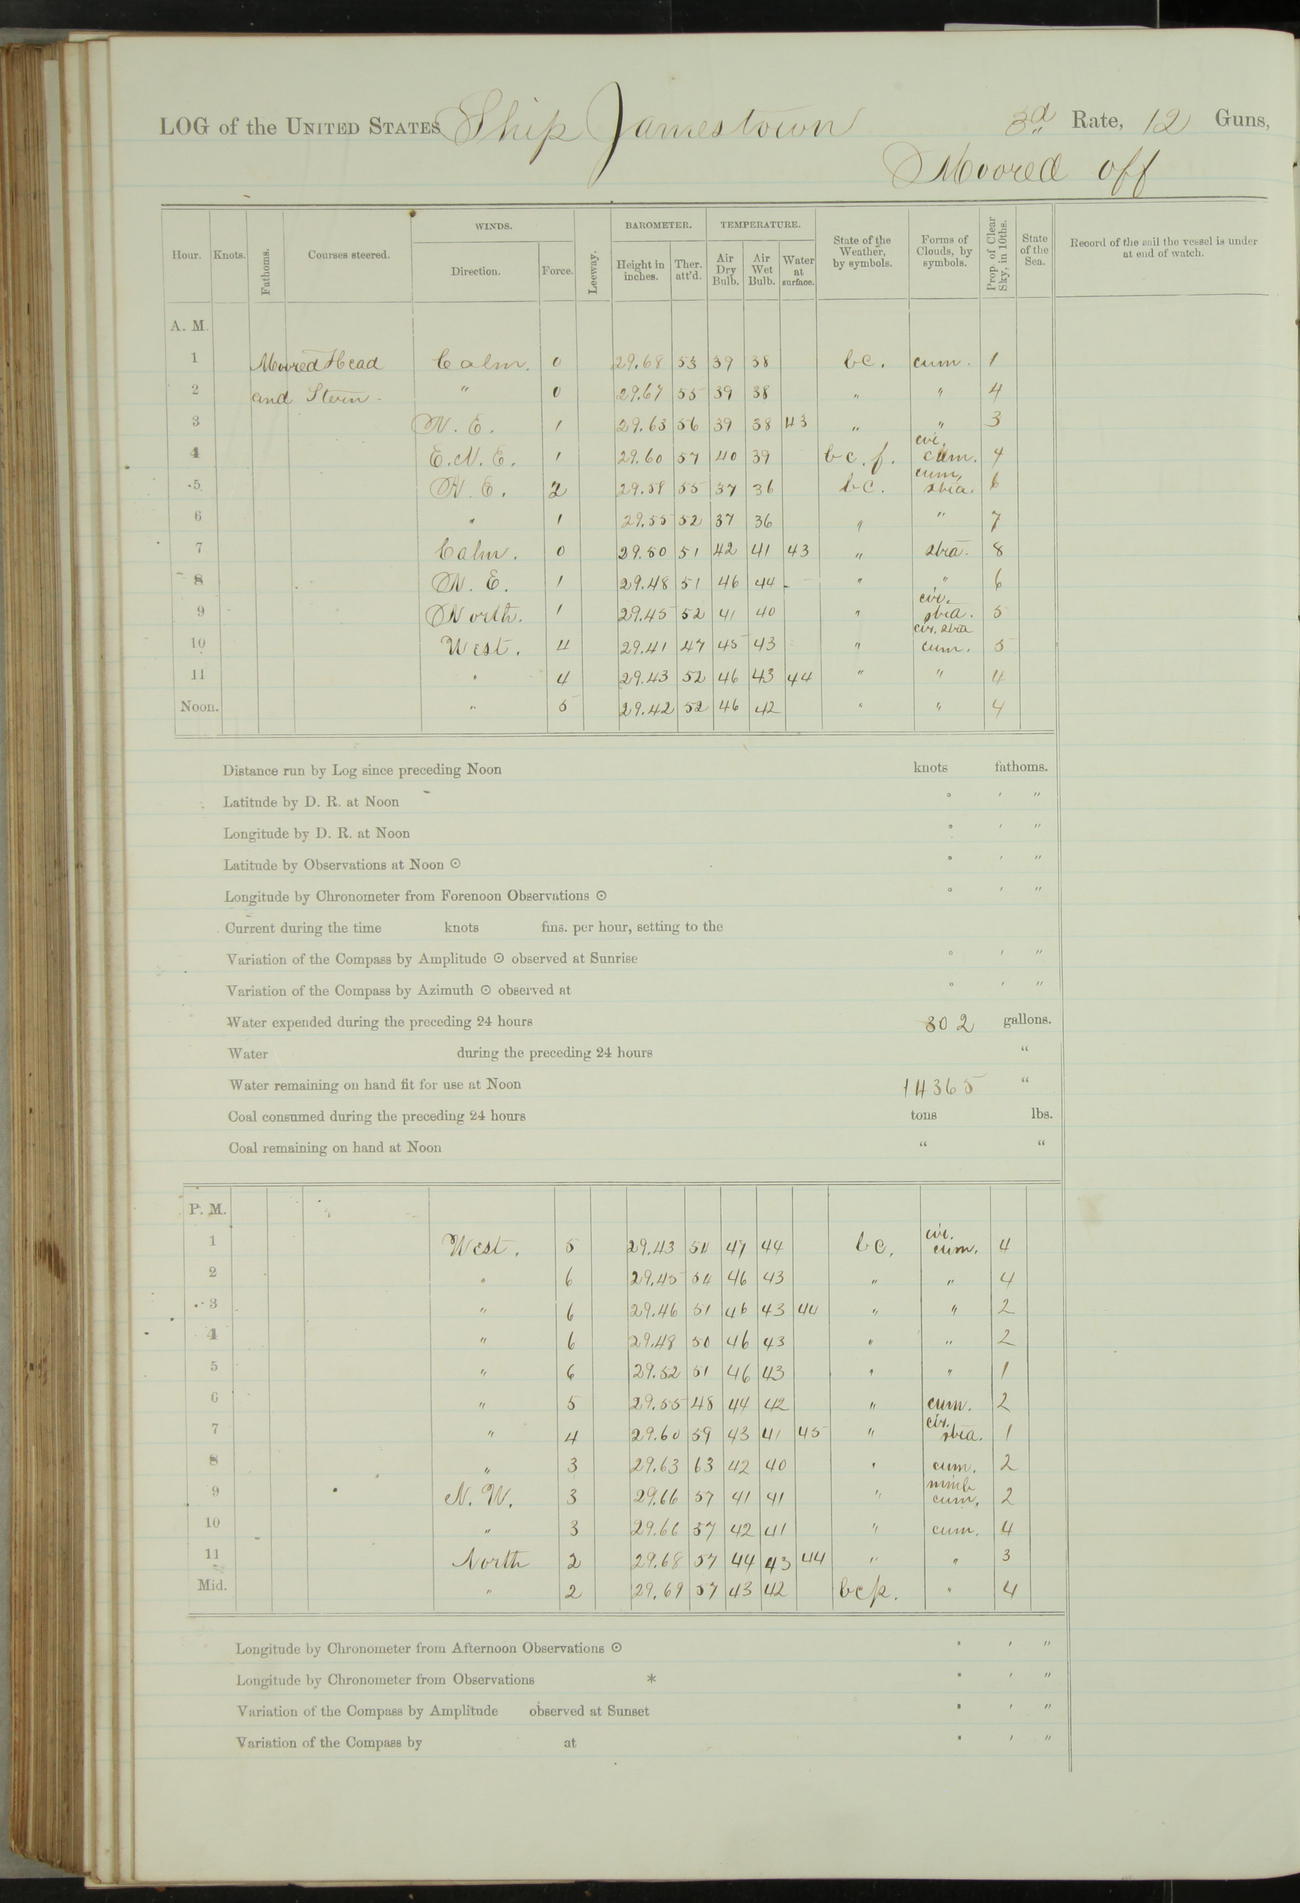 LOG of the UNITED STATES Ship Jamestown 3d Rate, 12 Guns,
Moored off
Hour. Knots. Fathoms. Courses steered. WINDS. Direction. Force. Leeway. BAROMETER. Height in inches. Ther. att'd. TEMPERATURE. Air Dry Bulb. Air Wet Bulb. Water at surface. State of the Weather, by symbols. Forms of Clouds, by symbols. Prop. of Clear Sky, in 10ths. State of the Sea. Record of the sail the vessel is under at end of watch.
A. M.
1 Moored Head Calm. 0 29.68 53 39 38 bc. cum. 1
2 and Stern - " 0 29.67 55 39 38 " " 4
3 N. E. 1 29.63 56 39 38 43 " " 3
4 E.N.E. 1 29.60 57 40 39 bc.f. cir. cum. 4
5 N. E. 2 29.58 55 37 36 bc. cum. stra. 6
6 " 1 29.55 52 37 36 " " 7
7 Calm. 0 29.50 51 42 41 43 " stra. 8
8 N. E. 1 29.48 51 46 44 " " 6
9 North. 1 29.45 52 41 40 " cir. stra. 5
10 West. 4 29.41 47 45 43 " cir. stra cum. 5
11 " 4 29.43 52 46 43 44 " " 4
Noon. " 5 29.42 52 46 42 " " 4
Distance run by Log since preceding Noon knots fathoms.
Latitude by D. R. at Noon ° ′ ″
Longitude by D. R. at Noon ° ′ ″
Latitude by Observations at Noon ⊙ ° ′ ″
Longitude by Chronometer from Forenoon Observations ⊙ ° ′ ″
Current during the time knots fms. per hour, setting to the
Variation of the Compass by Amplitude ⊙ observed at Sunrise ° ′ ″
Variation of the Compass by Azimuth ⊙ observed at ° ′ ″
Water expended during the preceding 24 hours 302 gallons.
Water during the preceding 24 hours “
Water remaining on hand fit for use at Noon 14365 “
Coal consumed during the preceding 24 hours tons lbs.
Coal remaining on hand at Noon “ “
P. M.
1 West. 5 29.43 54 47 44 bc. cir. cum. 4
2 " 6 29.45 54 46 43 " " 4
3 " 6 29.46 51 46 43 44 " " 2
4 " 6 29.48 50 46 43 " " 2
5 " 6 29.52 51 46 43 " " 1
6 " 5 29.55 48 44 42 " cum. 2
7 " 4 29.60 59 43 41 45 " cir. stra. 1
8 " 3 29.63 63 42 40 " cum. 2
9 N. W. 3 29.66 57 41 41 " nimb cum. 2
10 " 3 29.66 57 42 41 " cum. 4
11 North 2 29.68 57 44 43 44 " " 3
Mid. " 2 29.69 57 43 42 bcp. " 4
Longitude by Chronometer from Afternoon Observations ⊙ ° ′ ″
Longitude by Chronometer from Observations * ° ′ ″
Variation of the Compass by Amplitude observed at Sunset ° ′ ″
Variation of the Compass by at ° ′ ″